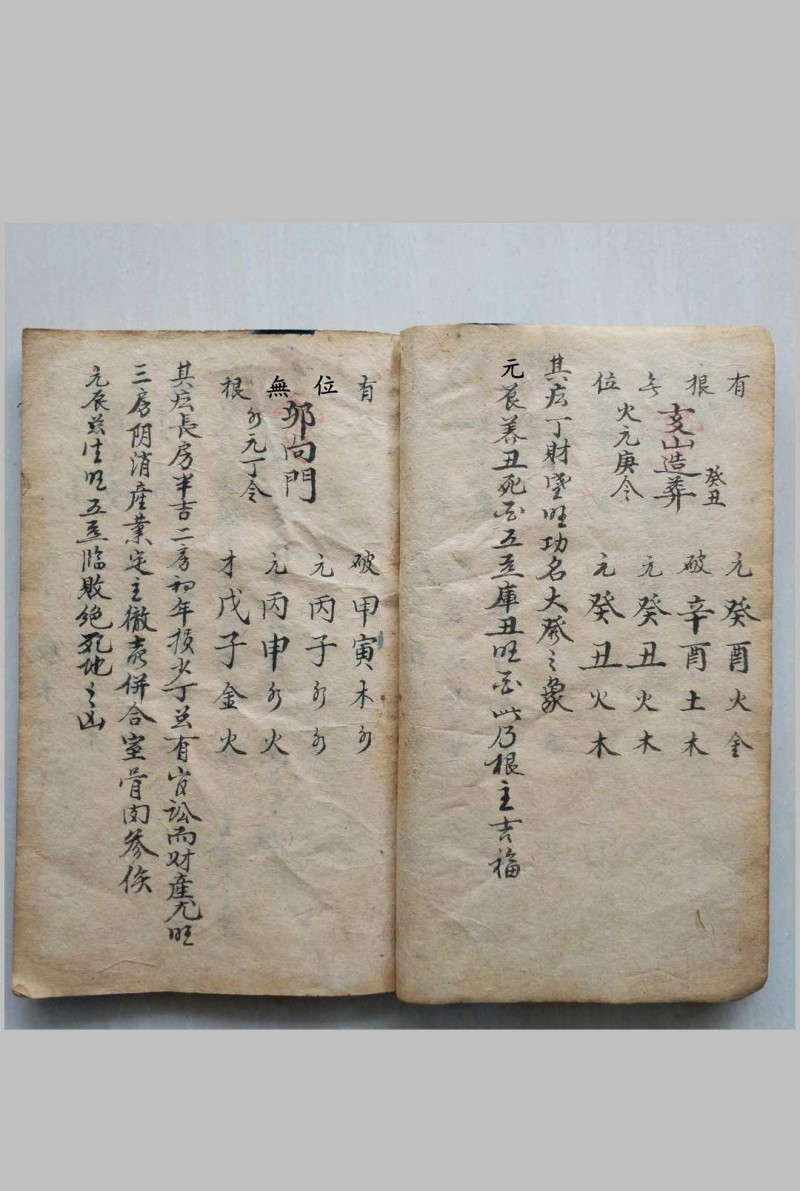 有根旡位
亥山造葬
癸丑
火元庚令
元癸酉火金
破辛酉土木
元癸丑火木
元癸丑火木
其应丁財望旺功名大發之象
元辰养丑死 五 庫丑旺 此乃根主吉福
有位無根
卯向門
元丁令
破甲寅木水
元丙子水水
元丙申水火
才戊子金火
其应長房半吉二房初年損少丁並有官訟而財產尤旺
三房阴消産業定主徹 併合室骨肉参
元辰 生旺五 臨敗絶死地之凶